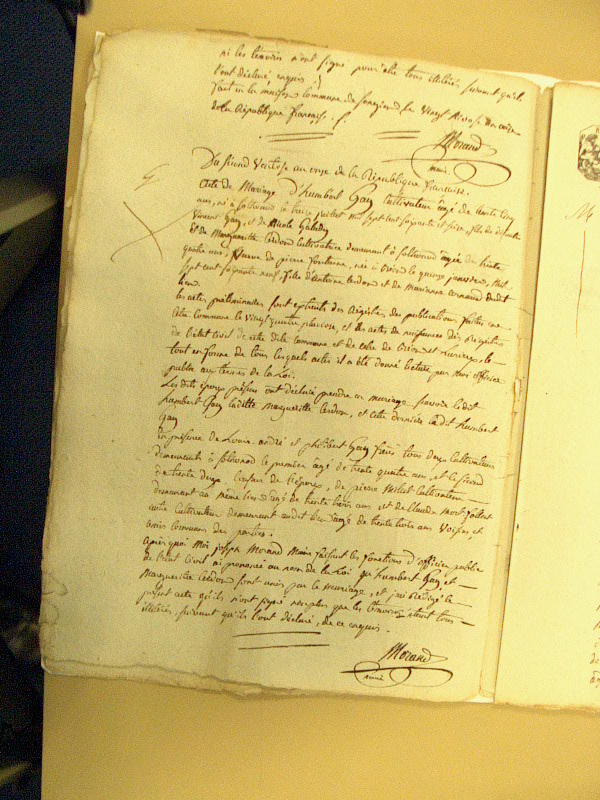 ni les témoins n'ont signé pour être tous illitérés suivant qu'ils
l'ont déclaré enquis
fait en la maison commune de le vingt nivose an onze
de la République française.
Morand
maire
Du second Ventose an onze de la République française.
Acte de Mariage d'humbert Gay cultivateur âgé de trente cinq
ans, né à le treize juillet mil sept cent soixante et sept, fils de défunt
Vincent Gay, et de Nicole
Et de Marguerite Cerdon cultivatrice demeurant à âgée de trente
quatre ans, veuve de pierre fontenne, née à le quinze janvier mil
sept cent soixante neuf, fille d'antoine Cerdon et de Marianne dudit
lieu.
les actes préliminaires sont extraits des Régistres des publications faites en
cette commune le vingt quatre pluviose, et des actes de naissances des Régistres
de l'état civil de cette dite commune et de celle de le
tout en forme de tous lesquels actes il a été donné lecture par moi officier
public aux termes de la Loi.
Les dits époux présens ont déclaré prendre en mariage savoir ledit
humbert Gay ladite Marguerite Cerdon, et cette dernière ledit humbert
Gay
en présence de Louis andré et philibert Gay frères tous deux cultivateurs
demeurants à le premier âgé de trente quatre ans, et le second
de trente deux, de l'époux, de pierre Milliet cultivateur
demeurant au même lieu âgé de trente trois ans, et de Claude
autre cultivateur demeurant audit lieu âgé de trente trois ans voisins et
amis communs des parties.
après quoi Moi joseph Morand Maire faisant les fonctions d'officier public
de l'état Civil ai prononcé au nom de la Loi qu'humbert Gay et
Marguerite Cerdon sont unis par le mariage, et j'ai rédigé le
présent acte qu'ils n'ont signé non plus que les témoins étant tous
illitérés, suivant qu'ils l'ont déclaré, de ce enquis.
Morand
maire